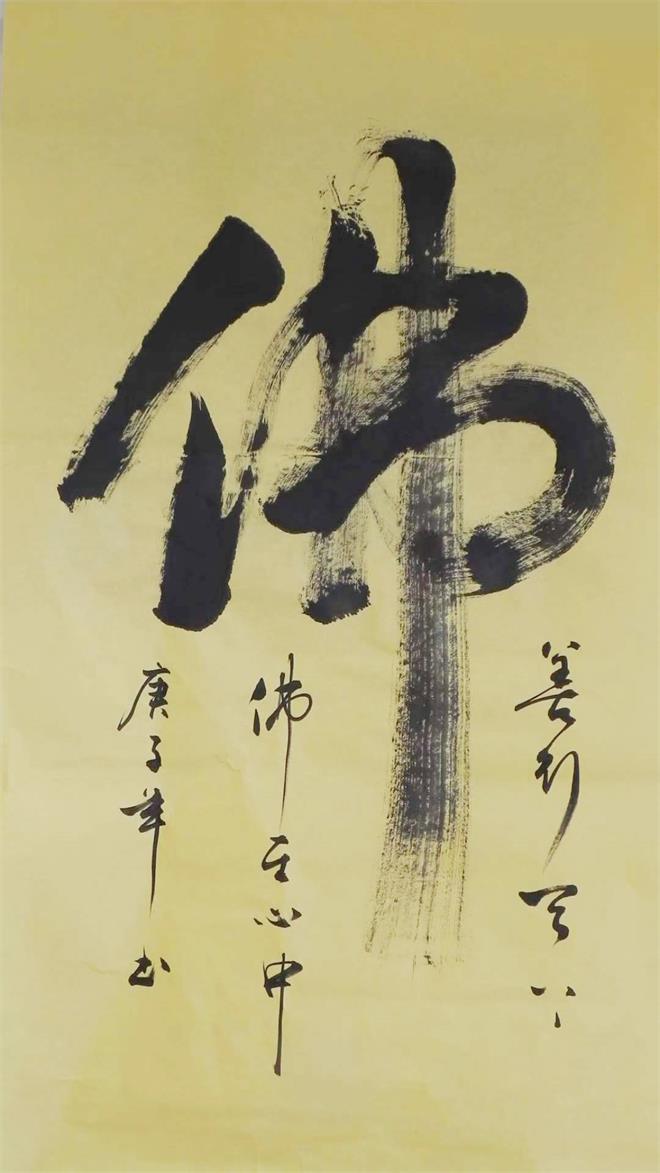 佛
善行天下
佛在心中
庚子年书